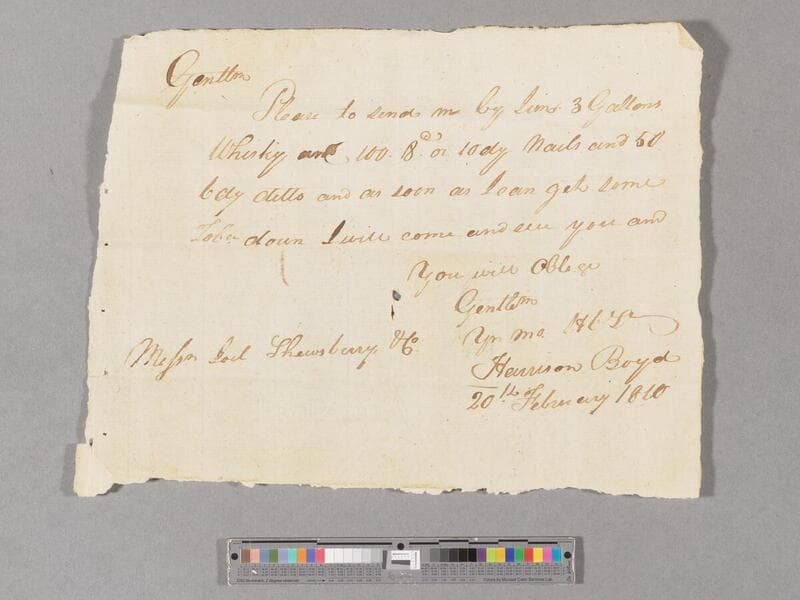 Gentlm
Please to send me by Jim 3 Gallons
Whisky and 100 8d or 10dy Nails and 50
6dy ditto and as soon as I can get some
Tobo down I will come and see you and
You will Oblege
Gentlm
Yr mo Hl St
Messrs Joel Shewsberry & Co
Harrison Boyd
20th February 1810